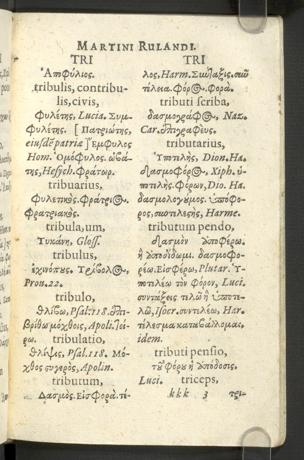 MARTINI RULANDI.
TRI
Ἀπιφύλιος.
tribulis, contribu-
lis, civis,
φυλέτης, Lucia. Συμ-
φυλέτης. [ Πατριώτης,
eiusdē patriæ ] Ἔμφυλος
Hom. Ὁμόφυλος.
της, Hesych. Φράτωρ.
tribuarius,
φυλετικὸς.
φρατριακός.
tribula, um,
Τυκάνη, Gloss.
tribulus,
ἐχινόπυς. Τρίβολος,
Pron. 22.
tribulo,
θλίβω, Psal. 118.
μόχθοις, Apoli.
ρω.
tribulatio,
θλίψις, Psal. 118. Μό-
χθος συγερὸς, Apolin.
tributum,
Δασμός. Εἰσφορά. τέ-
TRI
λος, Harm. Σύνταξις.
Φορά.
tributi scriba,
δασμογράφος, Naz.
Car. Ἐπιγραφεὺς.
tributarius,
Ὑποτελής, Dion. Ha.
δασμοφόρος, Xiph. ὑ-
ποτελής. Φόρων, Dio. Ha.
δασμολογούμενος. ὑπόφο-
ρος, Harme.
tributum pendo,
δασμὸν ὑποφέρω.
ἢ ὑποδίδωμι. δασμοφο-
ρέω. Εἰσφέρω, Plutar. Ὑ-
ποτελέω τὸν φόρον, Luci.
συντάξεις τελῶ ἢ ὑποτε-
λῶ, Isocr. συντελέω, Har.
τέλεσμα καταβάλλομαι,
idem.
tributi pensio,
τοῦ φόρου ἡ ὑπόδοσις.
Luci. triceps,
kkk 3 τρι-